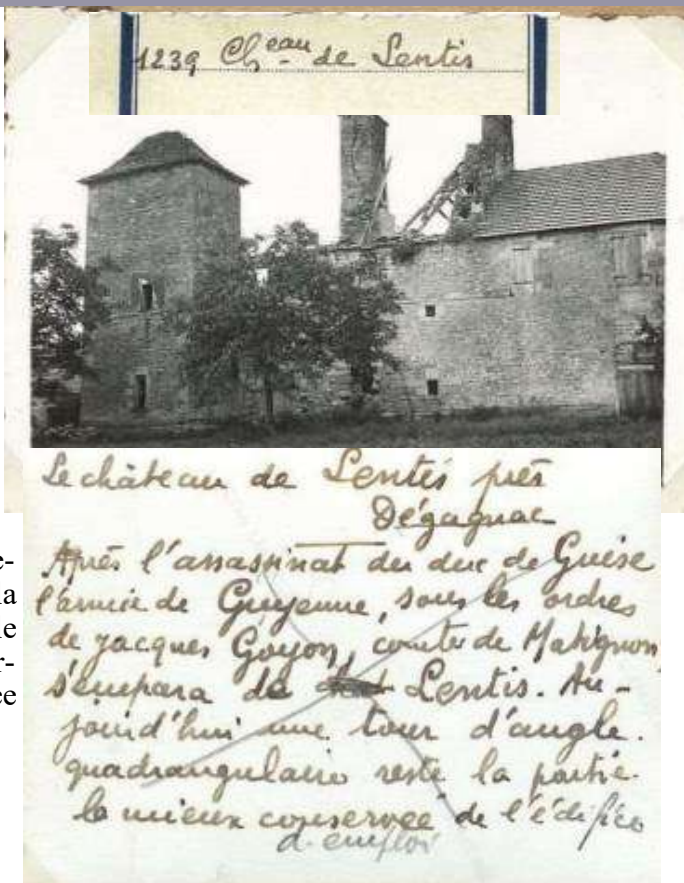 1239 Ch.eau de Lentis
Le château de Lentis près
Dégagnac
Après l'assassinat du duc de Guise
l'armée de Guyenne, sous les ordres
de Jacques Goyon, comte de Matignon,
s'empara de Lentis. Au-
jourd'hui une tour d'angle
quadrangulaire reste la partie
la mieux conservée de l'édifice
d. emploi
e-
la
le
r-
ée